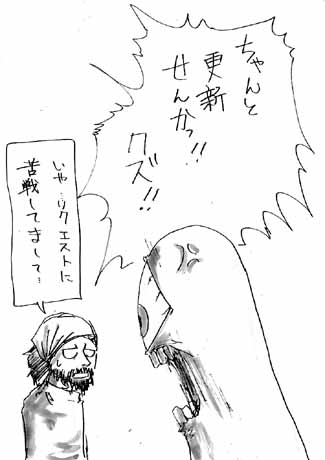 ちゃんと
更新
せんかっ!!
クズ!!
いや…リクエストに
苦戦してまして…